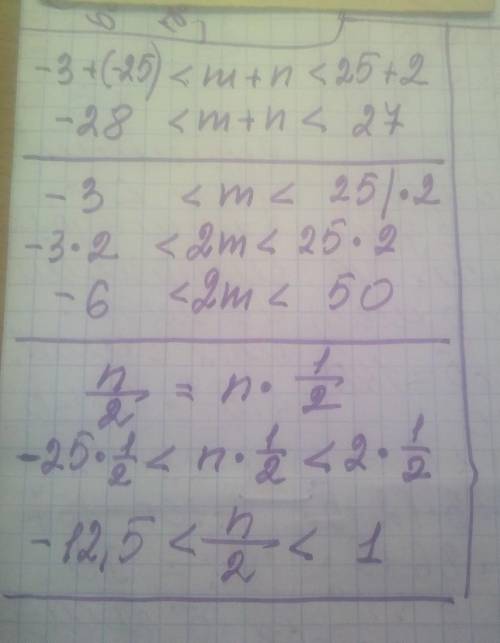 -3+(-25) < m+n < 25+2
-28 < m+n < 27
-3 < m < 25 | · 2
-3·2 < 2m < 25·2
-6 < 2m < 50
n/2 = n · 1/2
-25 · 1/2 < n · 1/2 < 2 · 1/2
-12,5 < n/2 < 1